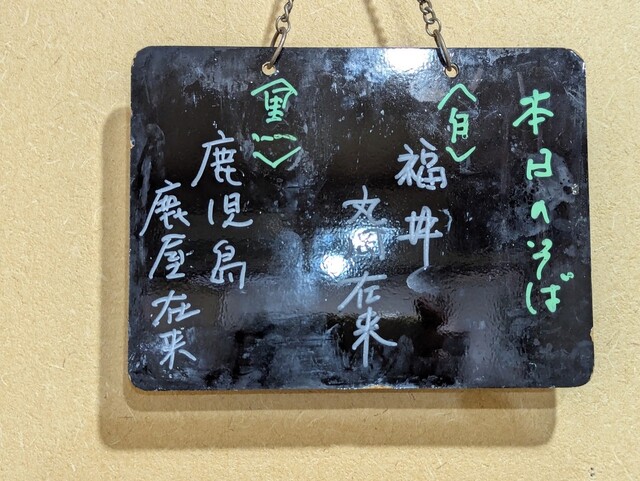 本日のそば
〈白〉
福井
丸岡在来
〈黒〉
鹿児島
鹿屋在来